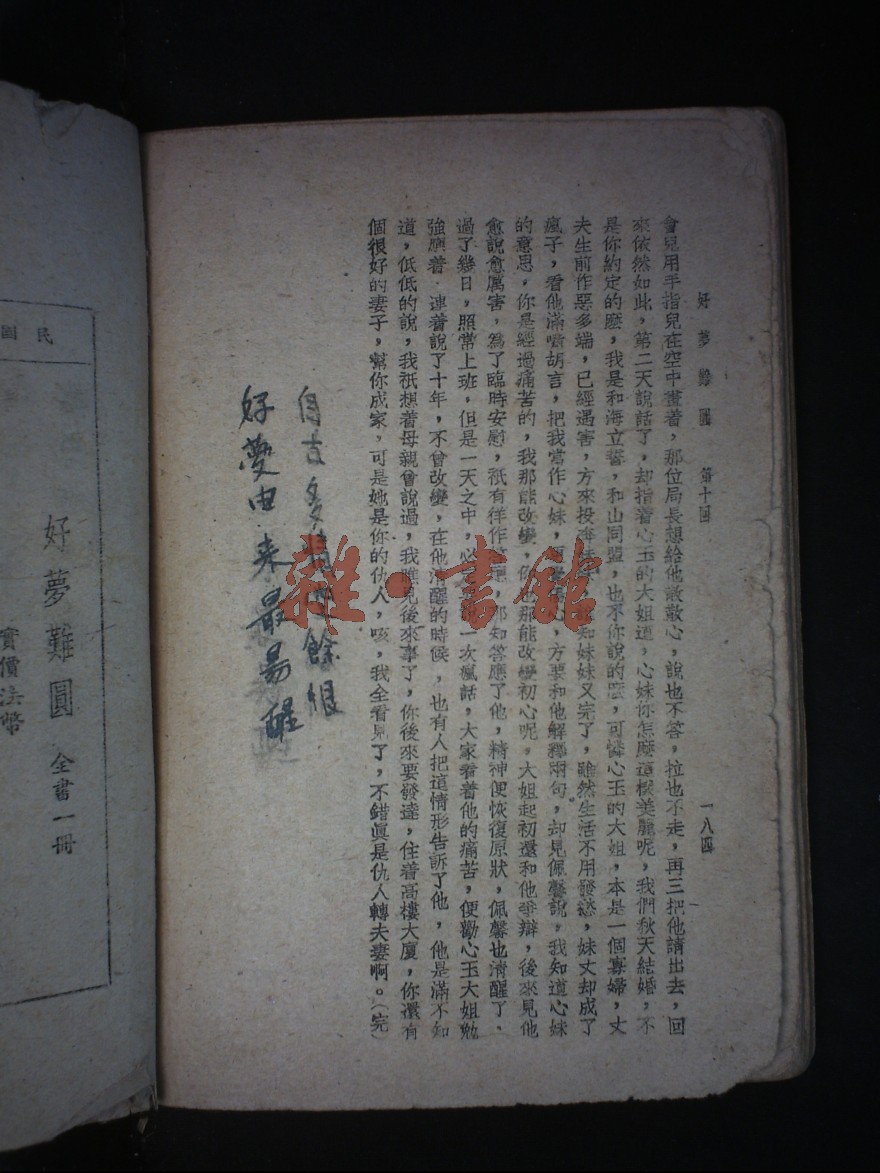 好夢難圓 第十回 一八四
會兒用手指兒在空中畫着，那位局長想給他散散心，說也不答，拉也不走，再三把他請出去，回
來依然如此，第二天說話了，却指着心玉的大姐道，心妹你怎麽這樣美麗呢，我們秋天結婚，不
是你約定的麽，我是和海立誓，和山同盟，也不你說的麽，可憐心玉的大姐，本是一個寡婦，丈
夫生前作惡多端，已經遇害，方來投奔妹 和妹妹又完了，雖然生活不用發愁，妹丈却成了
瘋子，看他滿嘴胡言，把我當作心妹， 心，方要和他解釋兩句，却見佩馨說，我知道心妹
的意思，你是經過痛苦的，我那能改變，你 那能改變初心呢，大姐起初還和他爭辯，後來見他
愈說愈厲害，爲了臨時安慰，祇有佯作 ，那知答應了他，精神便恢復原狀，佩馨也清醒了，
過了幾日，照常上班，但是一天之中，必 一次瘋話，大家看着他的痛苦，便勸心玉大姐勉
強應着，連着說了十年，不曾改變，在他清醒的時候，也有人把這情形告訴了他，他是滿不知
道，低低的說，我祇想着母親曾說過，我瞧見後來事了，你後來要發達，住着高樓大廈，你還有
個很好的妻子，幫你成家，可是她是你的仇人，咳，我全看見了，不錯眞是仇人轉夫妻啊。（完）
自古多情 餘恨
好夢由来最易醒
雜·書館
民國
好夢難圓 全書一冊
實價法幣